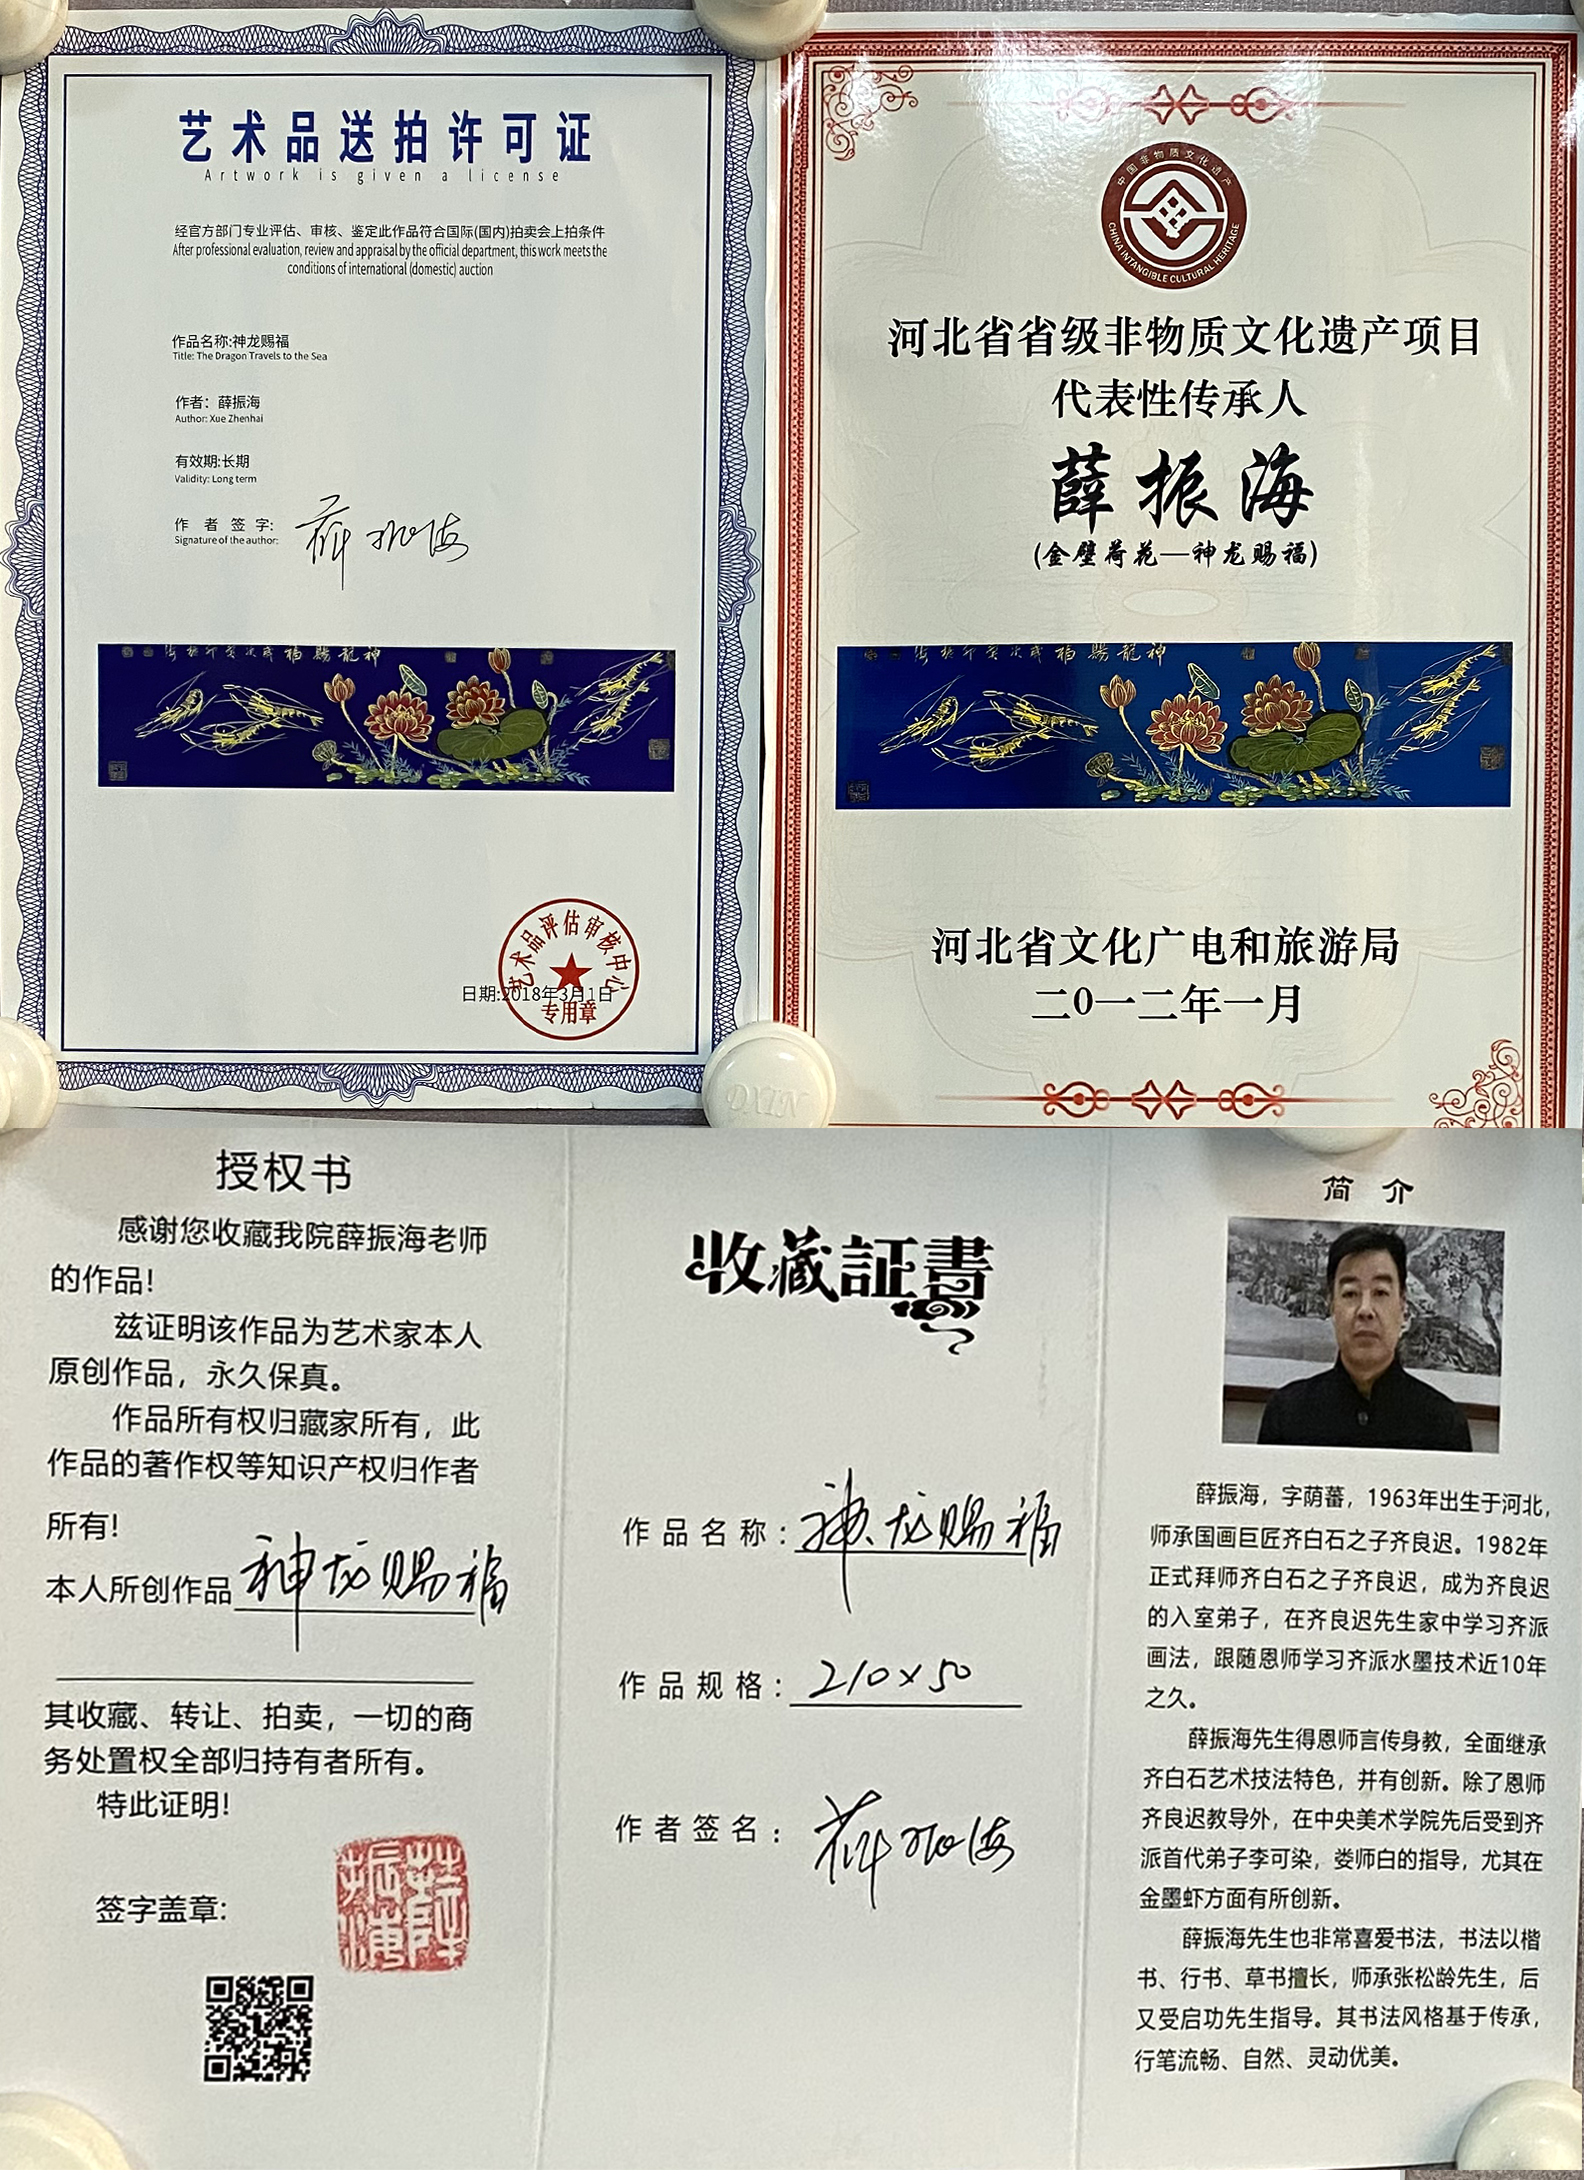 艺术品送拍许可证
Artwork is given a license
经官方部门专业评估、审核、鉴定此作品符合国际(国内)拍卖会上拍条件
After professional evaluation, review and appraisal by the official department, this work meets the
conditions of international (domestic) auction
作品名称:神龙赐福
Title: The Dragon Travels to the Sea
作者：薛振海
Author: Xue Zhenhai
有效期:长期
Validity: Long term
作 者 签 字: 薛振海
Signature of the author:
神龍賜福
艺术品评估审核中心
日期:2018年3月1日
专用章
中国非物质文化遗产
CHINA INTANGIBLE CULTURAL HERITAGE
河北省省级非物质文化遗产项目
代表性传承人
薛振海
(金壁荷花—神龙赐福)
神龍賜福
河北省文化广电和旅游局
二0一二年一月
DXIN
授权书
感谢您收藏我院薛振海老师
的作品!
兹证明该作品为艺术家本人
原创作品，永久保真。
作品所有权归藏家所有，此
作品的著作权等知识产权归作者
所有!
本人所创作品神龙赐福
其收藏、转让、拍卖，一切的商
务处置权全部归持有者所有。
特此证明!
签字盖章:
收藏証書
作品名称：神龙赐福
作品规格：210×50
作者签名：薛振海
简 介
薛振海，字荫蕃，1963年出生于河北，
师承国画巨匠齐白石之子齐良迟。1982年
正式拜师齐白石之子齐良迟，成为齐良迟
的入室弟子，在齐良迟先生家中学习齐派
画法，跟随恩师学习齐派水墨技术近10年
之久。
薛振海先生得恩师言传身教，全面继承
齐白石艺术技法特色，并有创新。除了恩师
齐良迟教导外，在中央美术学院先后受到齐
派首代弟子李可染，娄师白的指导，尤其在
金墨虾方面有所创新。
薛振海先生也非常喜爱书法，书法以楷
书、行书、草书擅长，师承张松龄先生，后
又受启功先生指导。其书法风格基于传承，
行笔流畅、自然、灵动优美。